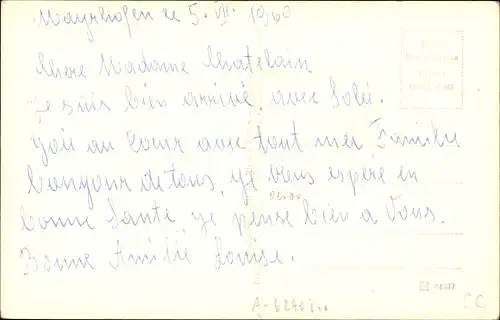 Mayrhofen le 5. VII. 1960
Chere Madame Chatelain
Je suis bien arrivé, avec Soléi.
Joii au Coeur avec tout mei Familie
bonyour de tous, Je vous espère en
bonne Sante, Je pense bien a Vous.
Bonne Amilie Louise.
A-6290
CC